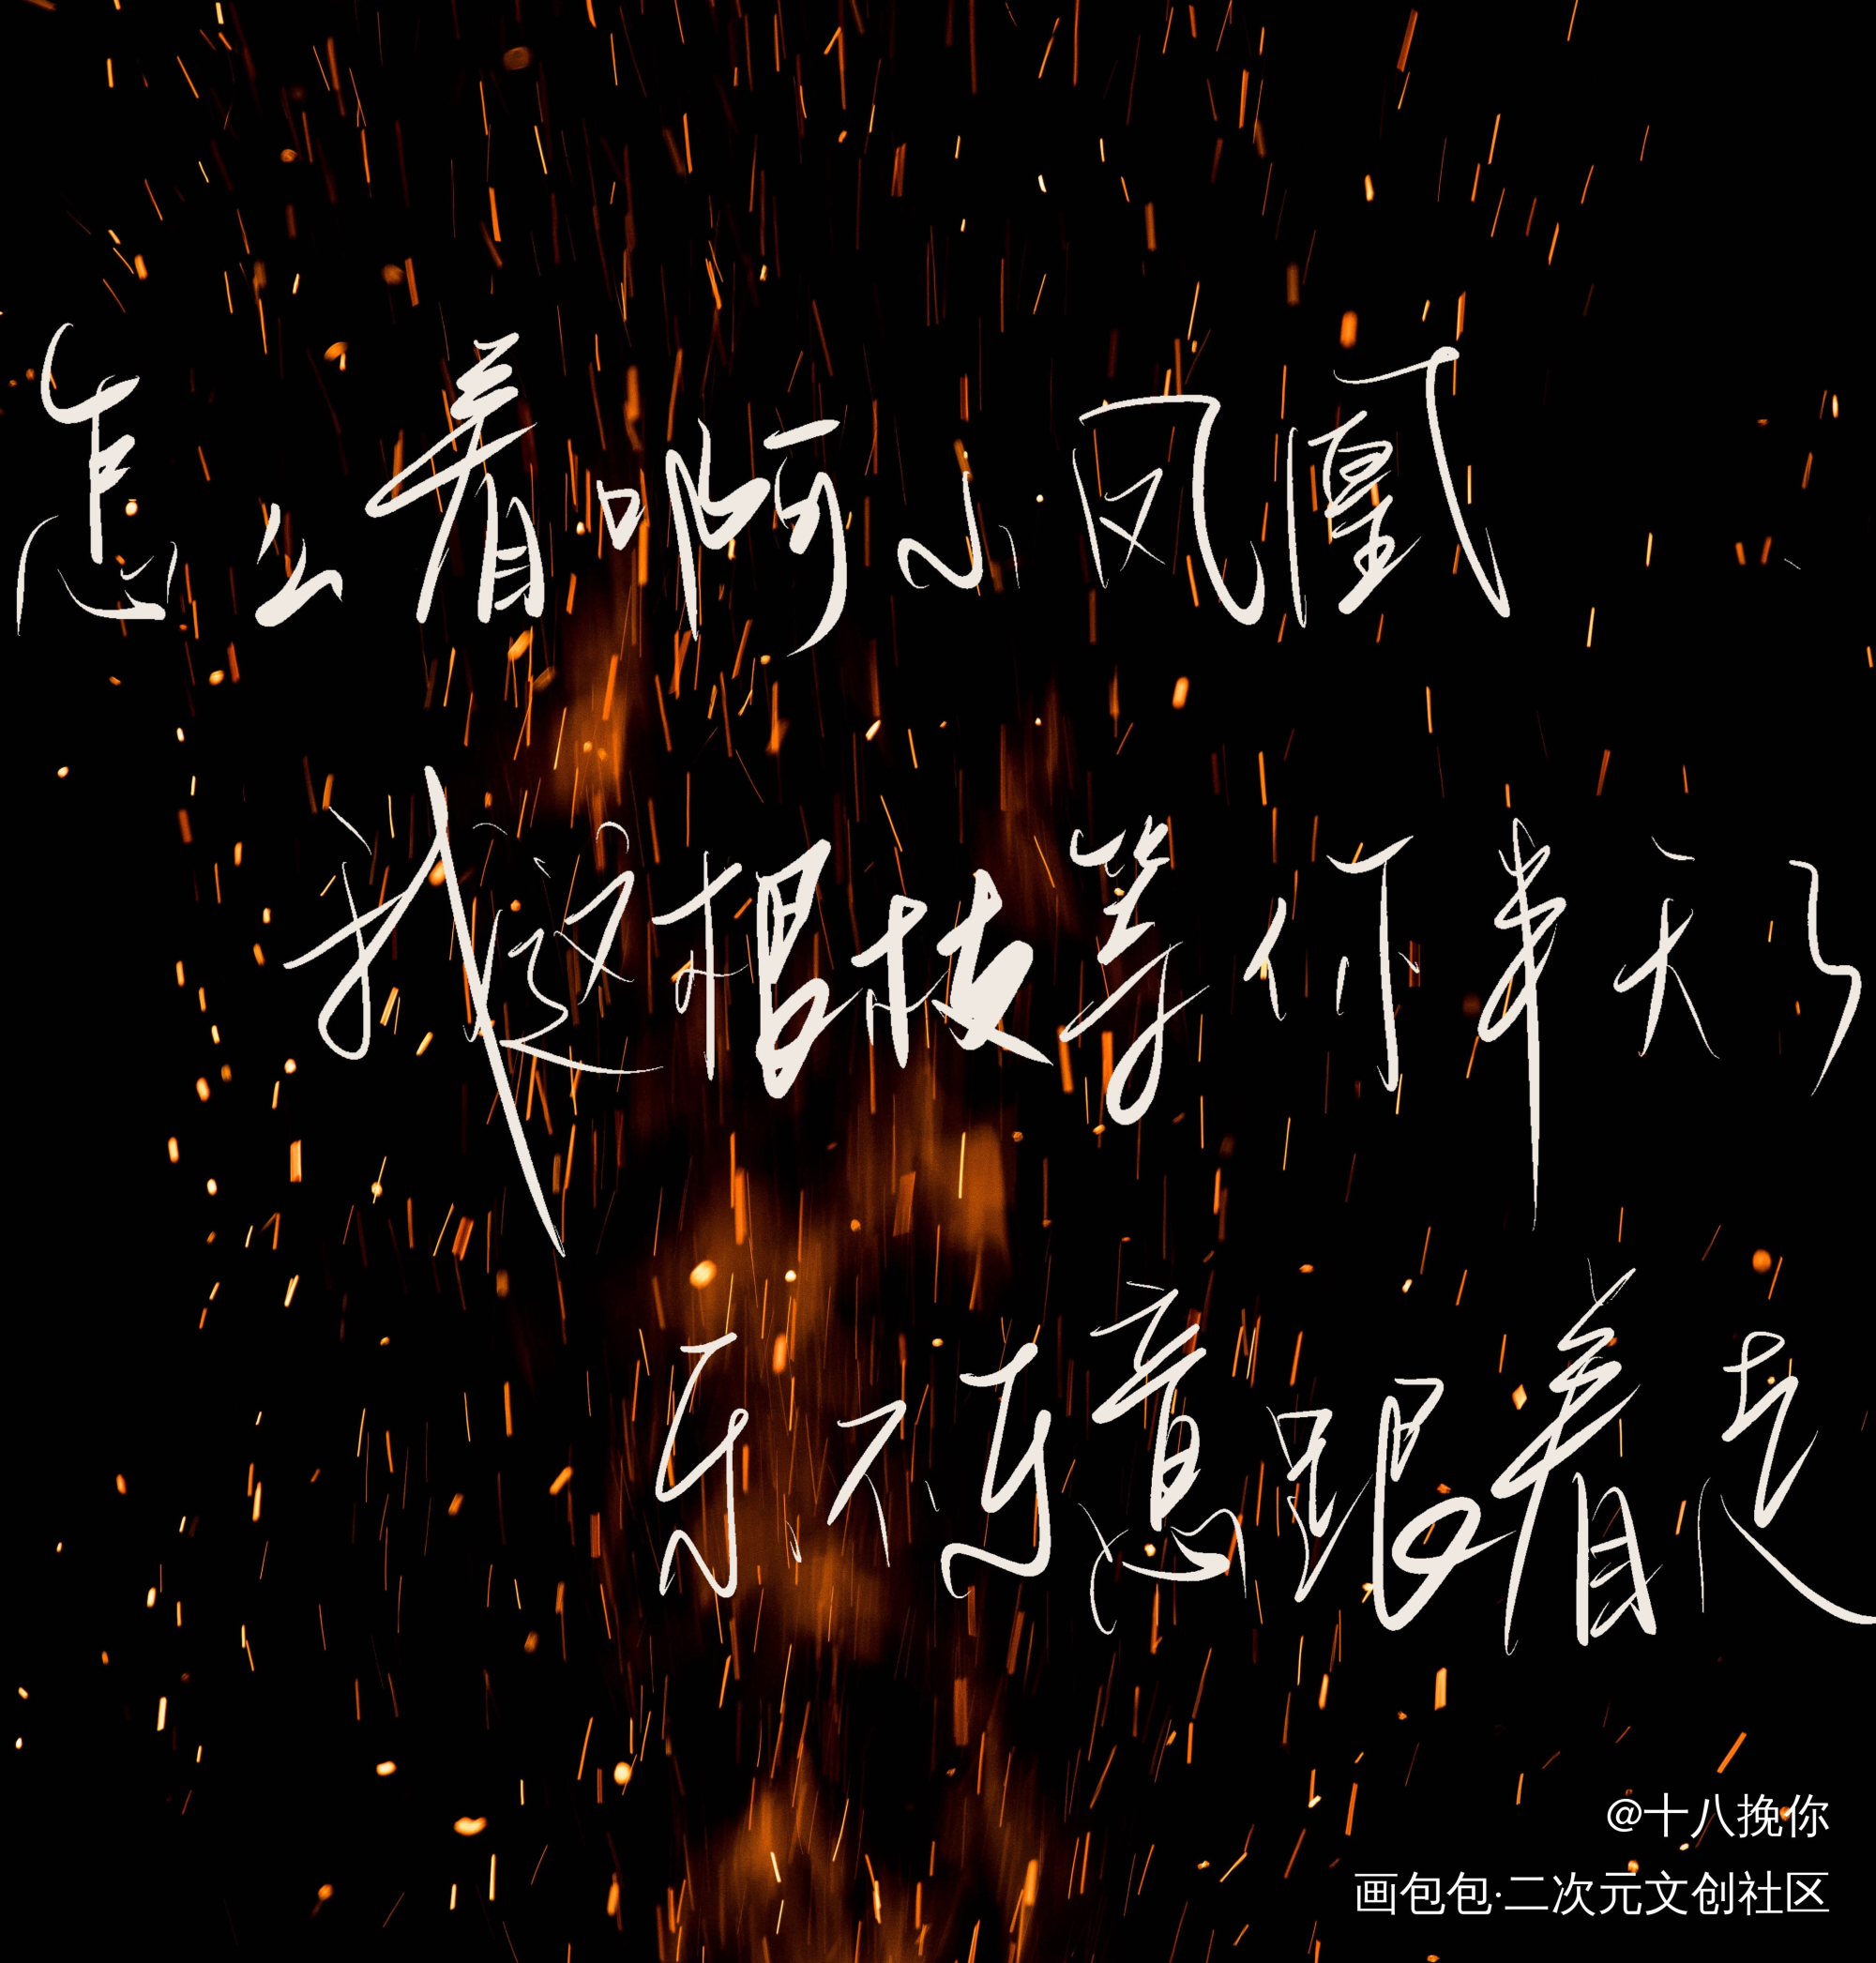 怎么着啊小凤凰
我这根枝等你半天了
乐不乐意跟着走
@十八挽你
画包包·二次元文创社区